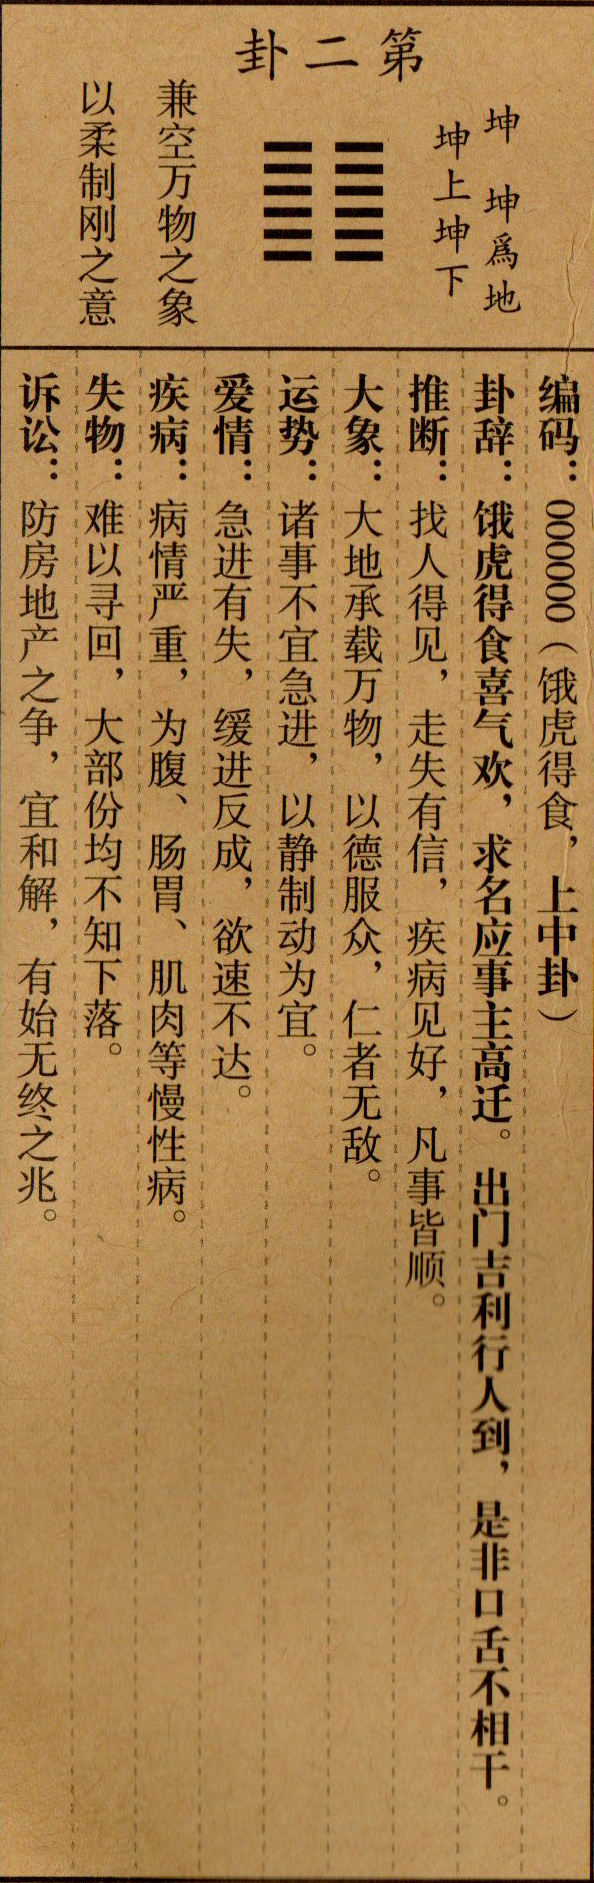 第二卦
坤 坤爲地
坤上坤下
兼空万物之象
以柔制刚之意
编码：000000（饿虎得食，上中卦）
卦辞：饿虎得食喜气欢，求名应事主高迁。出门吉利行人到，是非口舌不相干。
推断：找人得见，走失有信，疾病见好，凡事皆顺。
大象：大地承载万物，以德服众，仁者无敌。
运势：诸事不宜急进，以静制动为宜。
爱情：急进有失，缓进反成，欲速不达。
疾病：病情严重，为腹、肠胃、肌肉等慢性病。
失物：难以寻回，大部份均不知下落。
诉讼：防房地产之争，宜和解，有始无终之兆。